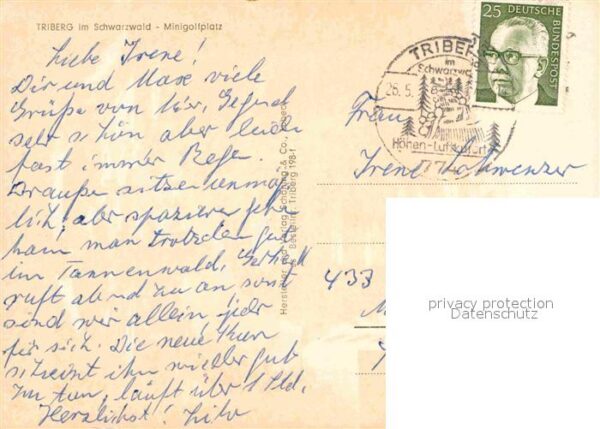 TRIBERG im Schwarzwald - Minigolfplatz
Liebe Irene!
Dir und Maxe viele
Grüße von hier, Gegend
sehr schön aber leider
fast immer Regen.
Draußen sitzen unmög
lich, aber spazieren geh
kann man trotzdem gut
im Tannenwald.
ruft ab und zu an sonst
sind wir allein, jeder
für sich. Die neue Kur
scheint ihm wieder gut
zu tun, läuft über 1 Std.
Herzlichst!
Hersteller und Verlag Schöning & Co., Lübeck
Bestellnr. Triberg 198-1
TRIBERG
im
Schwarzwald
26.5.
Höhen-Luftkurort
25
DEUTSCHE
BUNDESPOST
Frau
Irene Schwenzer
433
privacy protection
Datenschutz